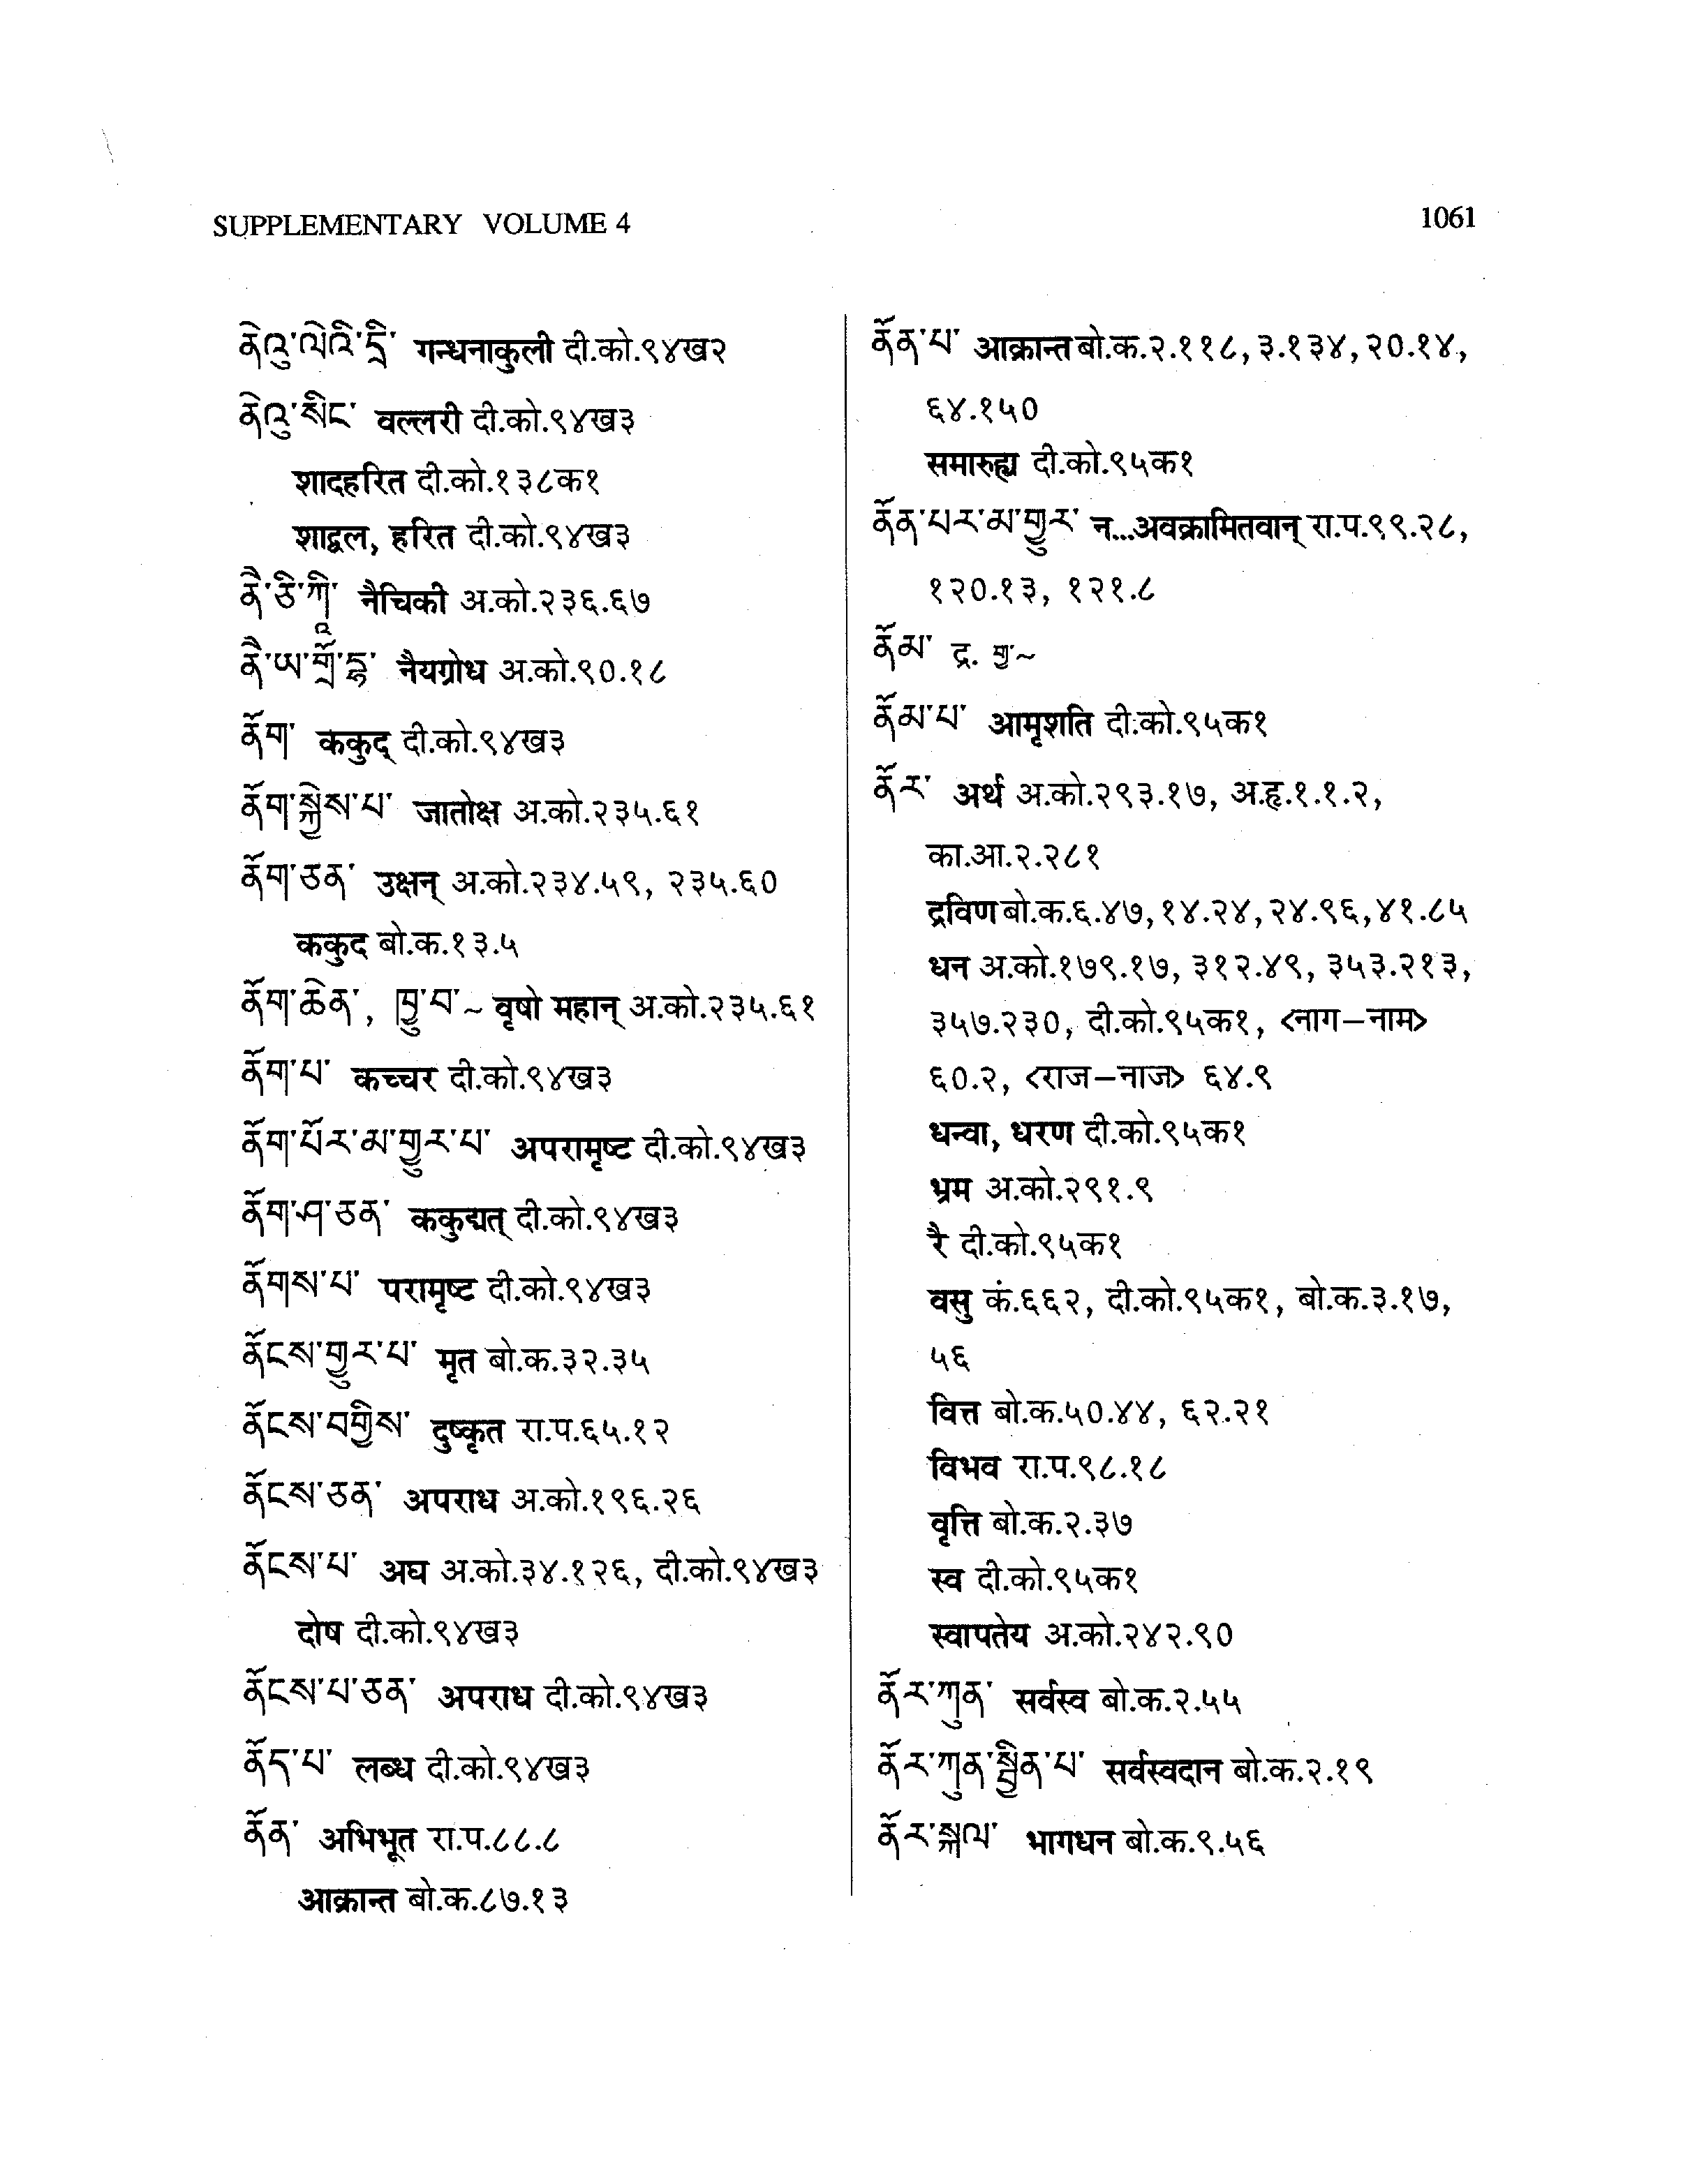 SUPPLEMENTARY VOLUME 4
1061
ནེའུ་ལེའི་དྲི་ गन्धनाकुली दी.को.९४ख२
ནེའུ་སིང་ वल्लरी दी.को.९४ख३
शादहरित दी.को.१३८क१
शाद्वल, हरित दी.को.९४ख३
ནཻ་ཅི་ཀཱི་ नैचिकी अ.को.२३६.६७
ནཻ་ཡ་གྲོ་དྷ་ नैयग्रोध अ.को.९०.१८
ནོག་ ककुद् दी.को.९४ख३
ནོག་སྐྱེས་པ་ जातोक्ष अ.को.२३५.६१
ནོག་ཅན་ उक्षन् अ.को.२३४.५९, २३५.६०
ककुद बो.क.१३.५
ནོག་ཆེན་, ཁྱུ་བ་~ वृषो महान् अ.को.२३५.६१
ནོག་པ་ कच्चर दी.को.९४ख३
ནོག་པོར་མ་གྱུར་པ་ अपरामृष्ट दी.को.९४ख३
ནོག་ཤ་ཅན་ ककुद्मत् दी.को.९४ख३
ནོགས་པ་ परामृष्ट दी.को.९४ख३
ནོངས་གྱུར་པ་ मृत बो.क.३२.३५
ནོངས་བགྱིས་ दुष्कृत रा.प.६५.१२
ནོངས་ཅན་ अपराध अ.को.१९६.२६
ནོངས་པ་ अघ अ.को.३४.१२६, दी.को.९४ख३
दोष दी.को.९४ख३
ནོངས་པ་ཅན་ अपराध दी.को.९४ख३
ནོད་པ་ लब्ध दी.को.९४ख३
ནོན་ अभिभूत रा.प.८८.८
आक्रान्त बो.क.८७.१३
ནོན་པ་ आक्रान्त बो.क.२.११८, ३.१३४, २०.१४,
६४.१५०
समारुह्य दी.को.९५क१
ནོན་པར་མ་གྱུར་ न...अवक्रामितवान् रा.प.९९.२८,
१२०.१३, १२१.८
ནོམ་ द्र. གྱ་~
ནོམ་པ་ आमृशति दी.को.९५क१
ནོར་ अर्थ अ.को.२९३.१७, अ.हृ.१.१.२,
का.आ.२.२८१
द्रविण बो.क.६.४७, १४.२४, २४.९६, ४१.८५
धन अ.को.१७९.१७, ३१२.४९, ३५३.२१३,
३५७.२३०, दी.को.९५क१, <नाग–नाम>
६०.२, <राज–नाज> ६४.९
धन्वा, धरण दी.को.९५क१
भ्रम अ.को.२९१.९
रै दी.को.९५क१
वसु कं.६६२, दी.को.९५क१, बो.क.३.१७,
५६
वित्त बो.क.५०.४४, ६२.२१
विभव रा.प.९८.१८
वृत्ति बो.क.२.३७
स्व दी.को.९५क१
स्वापतेय अ.को.२४२.९०
ནོར་ཀུན་ सर्वस्व बो.क.२.५५
ནོར་ཀུན་སྦྱིན་པ་ सर्वस्वदान बो.क.२.१९
ནོར་སྐལ་ भागधन बो.क.९.५६